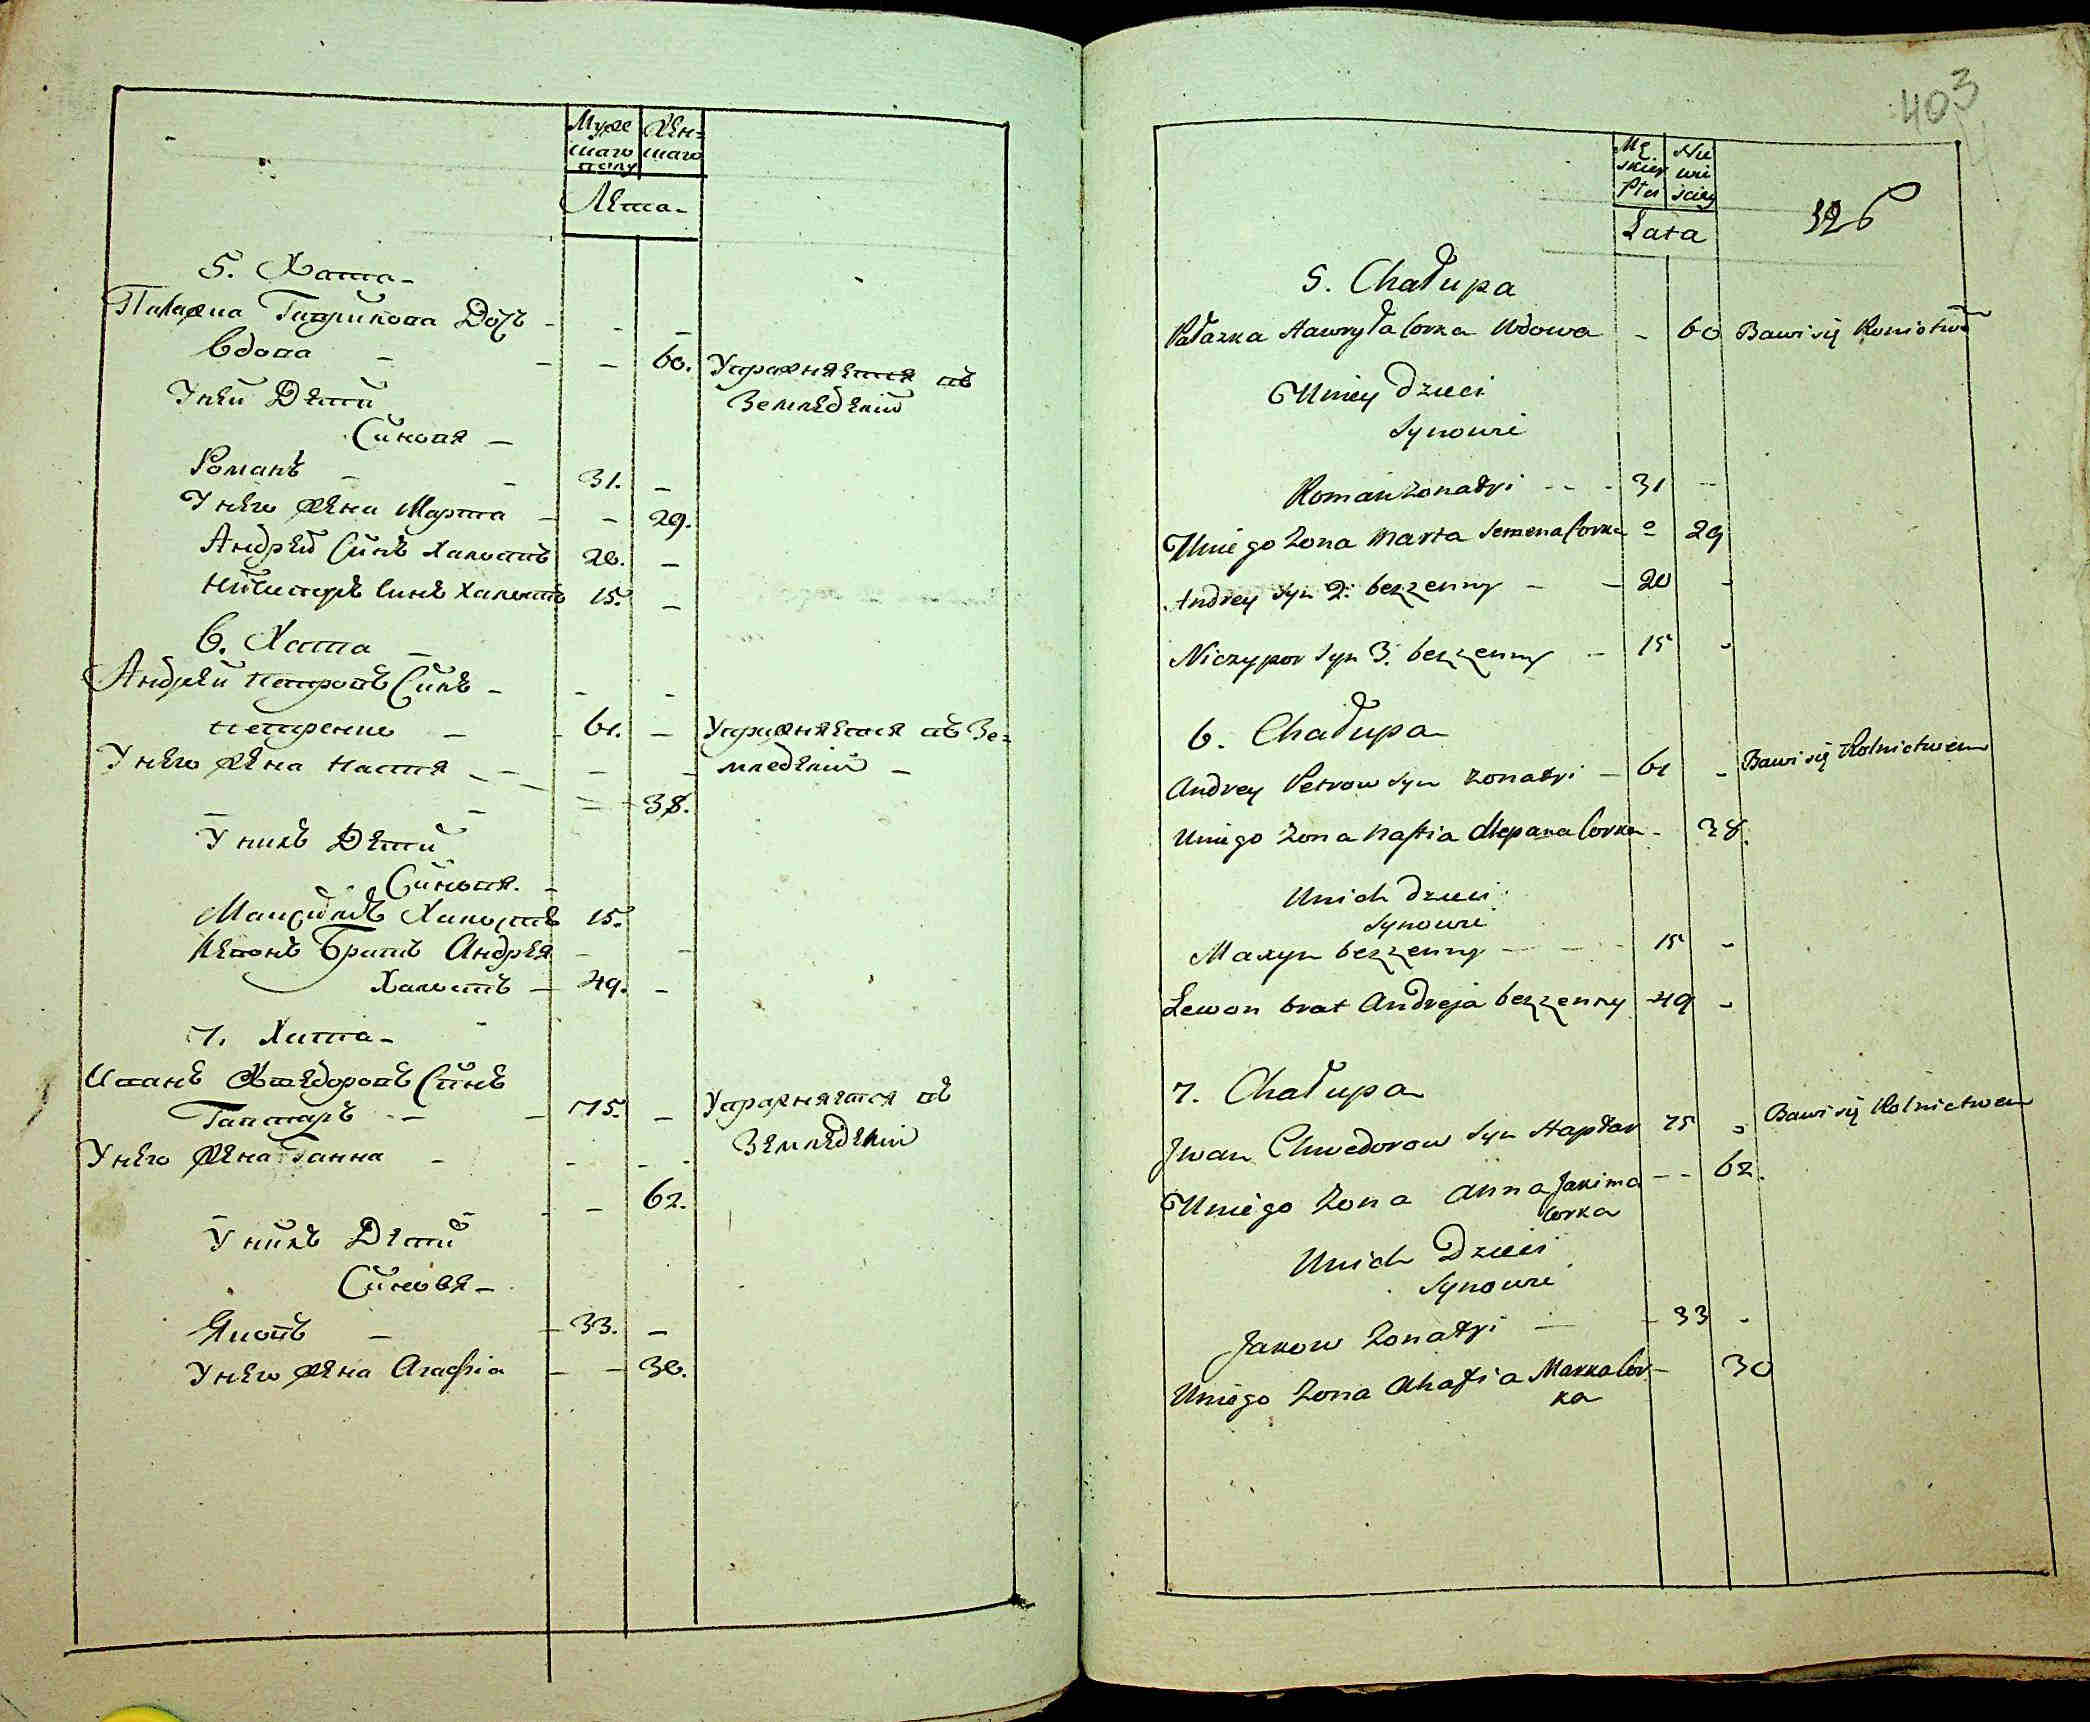 Муже
скаго
полу
Жен=
скаго
Лета.
5. Хата.
Палажка Гаврилова Доч
Вдова - - - 60. Упражняется въ
Земледелій
У ней Дети
Синовя -
Романъ - - 31. -
У него жена Марта - - 29.
Андрей Синъ Халостъ 20. -
Ничипоръ Синъ Халостъ 15. -
6. Хата -
Андрей Петровъ Синъ - - -
Петренко - - 61. - Упражняется въ Зе=
У него жена Настя - - - - мледелій -
- - - 38.
У нихъ Дети
Синовя. -
Максимъ Халостъ 15.
Левонъ Братъ Андрея - -
Халостъ - 49. -
7. Хата -
Иванъ Хведоровъ Синъ
Гаптаръ - - 75. - Упражняется въ
Земледелій
У него жена Ганна - - - -
- - - - 62.
У нихъ Дети
Синовя -
Яковъ - - 33. -
У него жена Агафія - - 30.
403
Mę
skiey
Płci
Nie
wie
ściey
Lata
326
5. Chałupa
Pałazka Hawryła Corka Wdowa - 60 Bawi się Rolnictwe
U niey Dzieci
Synowie
Roman Zonatyi - - - 31 -
U niego Zona Marta Semena Corka - 29
Andrey Syn 2. bezzenny - - 20 -
Niczypor Syn 3. bezzenny - 15 -
6. Chałupa
Andrey Petrow Syn Zonatyi - 61 - Bawi się Rolnictwem
U niego Zona Nastia Stepana Corka - 38.
U nich Dzieci
Synowie
Maxym bezzenny - - - 15 -
Lewon brat Andreja bezzenny - 49 -
7. Chałupa
Jwan Chwedorow Syn Haptar 75 - Bawi się Rolnictwem
U niego Zona Anna Jakima - - 62.
Corka
U nich Dzieci
Synowie
Jakow Zonatyi - - 33 -
U niego Zona Ahafia Marka Cor- 30
ka